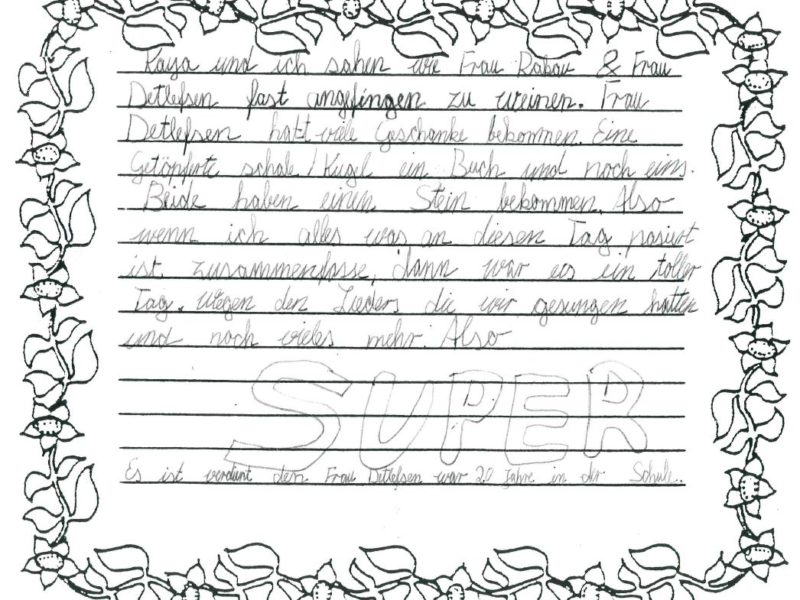 Kaya und ich sahen wie Frau Rabau & Frau
Detlefsen fast angefingen zu weinen. Frau
Detlefsen hatt viele Geschänke bekommen. Eine
Getöpfrte schale/Kugel ein Buch und noch eins.
Beide haben einen Stein bekommen. Also
wenn ich alles was an diesen Tag pasirt
ist zusammenfasse, dann war es ein toller
Tag. wegen den Lieders die wir gesungen hatten
und noch vieles mehr. Also
SUPER
Es ist verdint den Frau Detlefsen war 20 Jahre in der Schule.